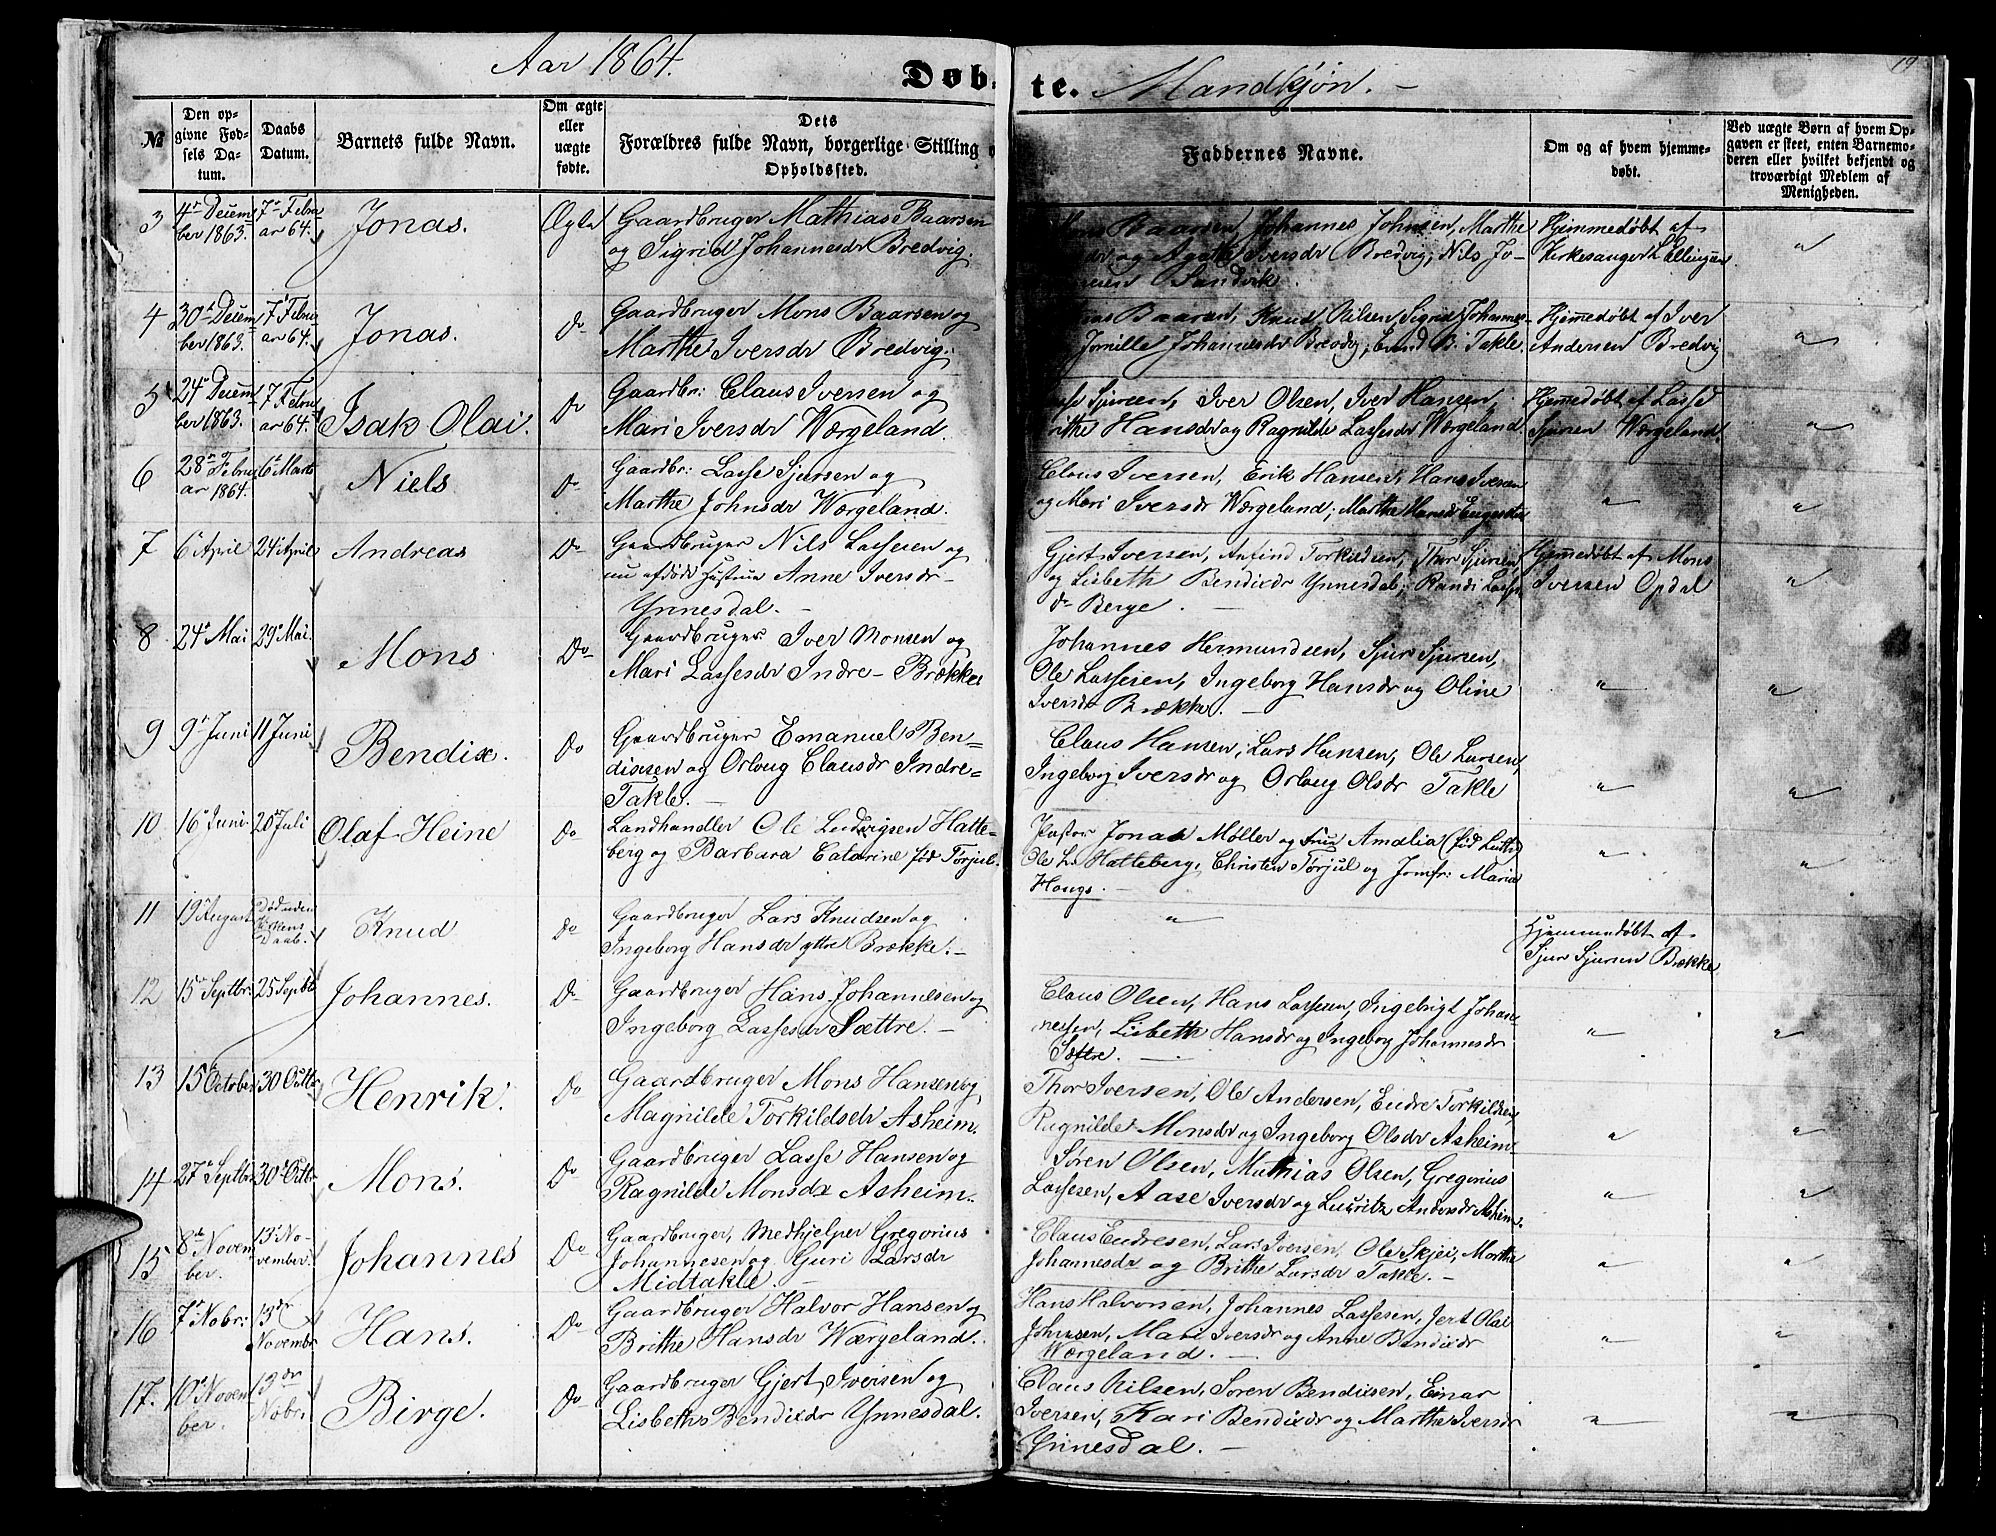 19
Aar 1864.
Døb-
te. Mandkjøn. -
№
Den op-
givne Fød-
sels Da-
tum.
Daabs
Datum.
Barnets fulde Navn.
Om ægte
eller
uægte
fødte.
Dets
Forældres fulde Navn, borgerlige Stilling o
Opholdssted.
Faddernes Navne.
Om og af hvem hjemme-
døbt.
Ved uægte Børn af hvem Op-
gaven er skeet, enten Barnemo-
deren eller hvilket bekjendt og
troværdigt Medlem af
Menigheden.
3
4de Decem
ber 1863.
7de Febru
ar 64.
Jonas.
Ægte
Gaardbruger Mathias Baarsen
og Sigrid Johannesdr Bredvig.
Baarsen, Johannes Johnsen, Marthe
og Agathe Iversdr Bredvig, Nils Jo-
Sandvik.
Hjemmedøbt af
Kirkesanger L Ellingsen
"
4
30de Decem
ber 1863.
7de Febru
ar 64.
Jonas.
Do
Gaardbruger Mons Baarsen og
Marthe Iversdr Bredvig.
Baarsen, Knud Nilsen, Sigrid Johannes-
Johannesdr Bredvig, B. Takle.
Hjemmedøbt af Iver
Andersen Bredvig
"
5
24de Decem
ber 1863.
7 Febru
ar 64.
Isak Olai.
Do
Gaardbr: Claus Iversen og
Mari Iversdr Wærgeland.
Sjursen, Iver Olsen, Iver Hansen,
Hansdr og Ragnilde Lassesdr Wærgeland
Hjemmedøbt af Lasse
Sjursen Wærgeland.
"
6
28de Febru
ar 1864.
6te Marts
Niels
Do
Gaardbr: Lasse Sjursen og
Marthe Johnsdr Wærgeland.
Claus Iversen, Erik Hansen, Hans Iversen
og Mari Iversdr Wærgeland; Marthe Hansdr
"
"
7
6te April
24de April
Andreas
Do
Gaardbruger Nils Lassesen og
nu afdøde Hustrue Anne Iversdr -
Ynnesdal. -
Gjert Iversen, Anfind Torkildsen, Thor Sjursen
og Lisbeth Bendixdr Ynnesdal; Randi Lasses
dr Berge. -
Hjemmedøbt af Mons
Iversen Opdal
"
8
24de Mai
29de Mai.
Mons
Do
Gaardbruger Iver Monsen og
Mari Lassesdr Indre-Brække
Johannes Hermundsen, Sjur Sjursen,
Ole Lassesen, Ingeborg Hansdr og Oline
Iversdr Brække. -
"
"
9
9de Juni
11 Juni
Bendix.
Do
Gaardbruger Emanuel Ben=
dixsen og Orloug Clausdr Indre=
Takle. -
Claus Hansen, Lars Hansen, Ole Larsen,
Ingeborg Iversdr og Orloug Olsdr Takle
"
"
10
16de Juni
20de Juli
Olaf Heine
Do
Landhandler Ole Ludvigsen Hatte-
berg og Barbara Catarine fød Tørjul.
Pastor Jonas Møller og Frue Amalia (fød
Ole L. Hatteberg, Christen Tørjul og Jomfr: Maria
Hougs. -
"
"
11
19de August
Død uden
Kirkens
Daab.
Knud
Do
Gaardbruger Lars Knudsen og
Ingeborg Hansdr yttre Brække. -
"
Hjemmedøbt af
Sjur Sjursen Brække
12
15de Septbr:
25 Septbr
Johannes.
Do
Gaardbruger Hans Johannesen og
Ingeborg Lassesdr Sættre. -
Claus Olsen, Hans Lassesen, Ingebrigt Johan-
nesen, Lisbeth Hansdr og Ingeborg Johannesdr
Sættre. -
"
"
13
15de October
30 Octbr
Henrik.
Do
Gaardbruger Mons Hansen og
Magnilde Torkildsdr Asheim.
Thor Iversen, Ole Andersen, Endre Torkildsen,
Ragnilde Monsdr og Ingeborg Olsdr Asheim.
"
"
14
27de Septbr
30de Octbr
Mons.
Do
Gaardbruger Lasse Hansen og
Ragnilde Monsdr Asheim.
Søren Olsen, Mathias Olsen, Gregorius
Lassesen, Aase Iversdr og Lauritz Andersdr Asheim.
"
"
15
8de Novem
ber.
13de No-
vember.
Johannes
Do
Gaardbruger, Medhjelper Gregorius
Johannesen og Guri Larsdr
Midtakle. -
Claus Endresen, Lars Iversen, Ole Skjei, Marthe
Johannesdr og Brithe Larsdr Takle. -
"
"
16
7de Nobr:
13de
Novembr
Hans.
Do
Gaardbruger Halvor Hansen og
Brithe Hansdr Wærgeland.
Hans Halvorsen, Johannes Lassesen, Jert Olai
Johnsen, Mari Iversdr og Anne Bendixdr
Wærgeland. -
"
"
17.
10de Novem
ber.
13de
Nobr.
Birge.
Do
Gaardbruger Gjert Iversen og
Lisbeth Bendixdr Ynnesdal.
Claus Nilsen, Søren Bendixsen, Einar
Iversen, Kari Bendixdr og Marthe Iversdr
Ynnesdal. -
"
"